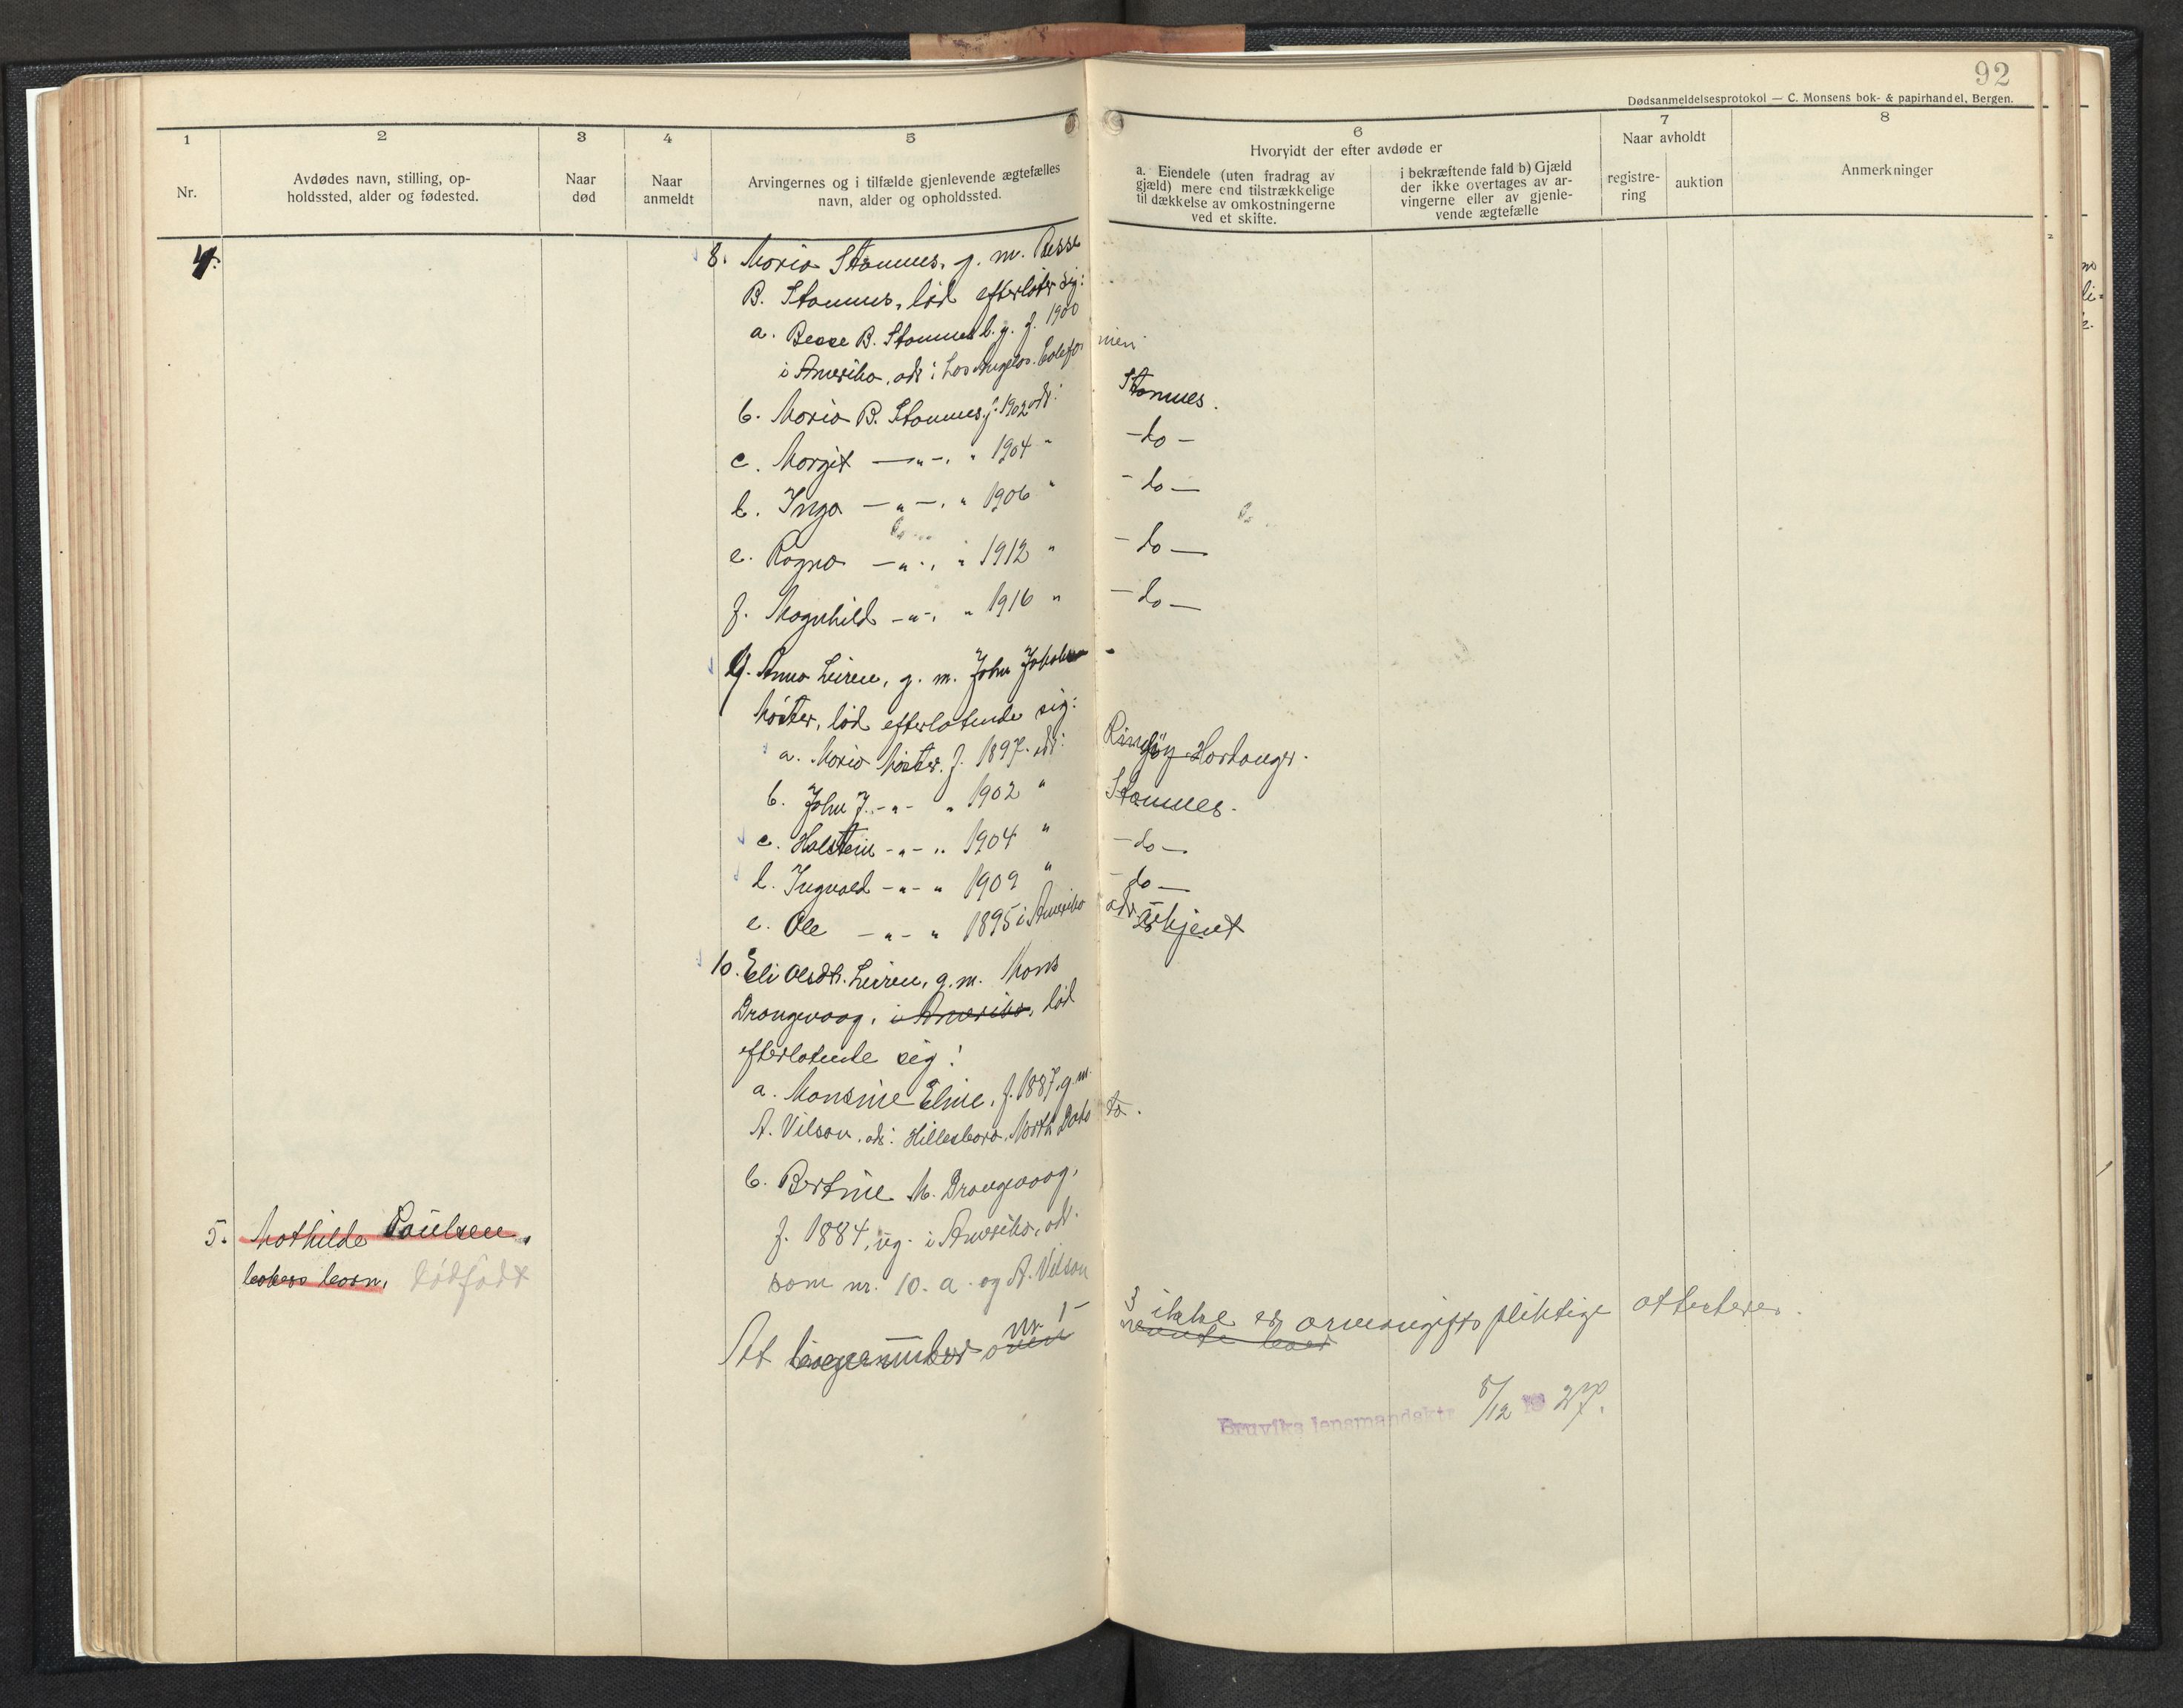 92
Dødsanmeldelsesprotokol — C. Monsens bok- & papirhandel, Bergen.
1 2 3 4 5 6 7 8
Nr.
Avdødes navn, stilling, op-
holdssted, alder og fødested.
Naar
død
Naar
anmeldt
Arvingernes og i tilfælde gjenlevende ægtefælles
navn, alder og opholdssted.
Hvorvidt der efter avdøde er
a. Eiendele (uten fradrag av
gjæld) mere end tilstrækkelige
til dækkelse av omkostningerne
ved et skifte.
i bekræftende fald b) Gjæld
der ikke overtages av ar-
vingerne eller av gjenle-
vende ægtefælle
Naar avholdt
registre-
ring
auktion
Anmerkninger
4.
8. Maria Stamnes, g. m. Besse
B. Stamnes, död efterlater sig:
a. Besse B. Stamnes b. g. f. 1900
i Amerika, adr: Los Angelos. Califor nien
b. Maria B. Stamnes, f. 1902 adr: Stamnes.
c. Margit — " —, " 1904 " — do —
d. Inga — " —, " 1906 " — do —
e. Ragna — " —, " 1912 " — do —
f. Magnhild — " —, " 1916 " — do —
9. Anna Leiren, g. m. John Jakobsen
Möster, död efterlatende sig:
a. Maria Möster. f. 1897. adr: Ringöy Hardanger.
b. John J. — " — " 1902 " Stamnes.
c. Halstein — " — " 1904 " — do —
d. Ingvald — " — " 1909 " — do —
e. Ole — " — " 1895 i Amerika adr. ukjent
10. Eli Olsdtr. Leiren, g. m. Mons
Drangevaag, i Amerika, död
efterlatende sig:
a. Monsine Eline, f. 1887, g. m.
A. Vilson, adr: Hillesboro, North Dako ta.
b. Bertine M. Drangevaag,
f. 1884, ug. i Amerika, adr.
som nr. 10. a. og A. Vilson
5. Mathilde Paulsen,
dödfödt
At nr 1 3 ikke er arveavgiftspliktige attesterer.
Bruviks lensmandsktr 5/12 19 27.